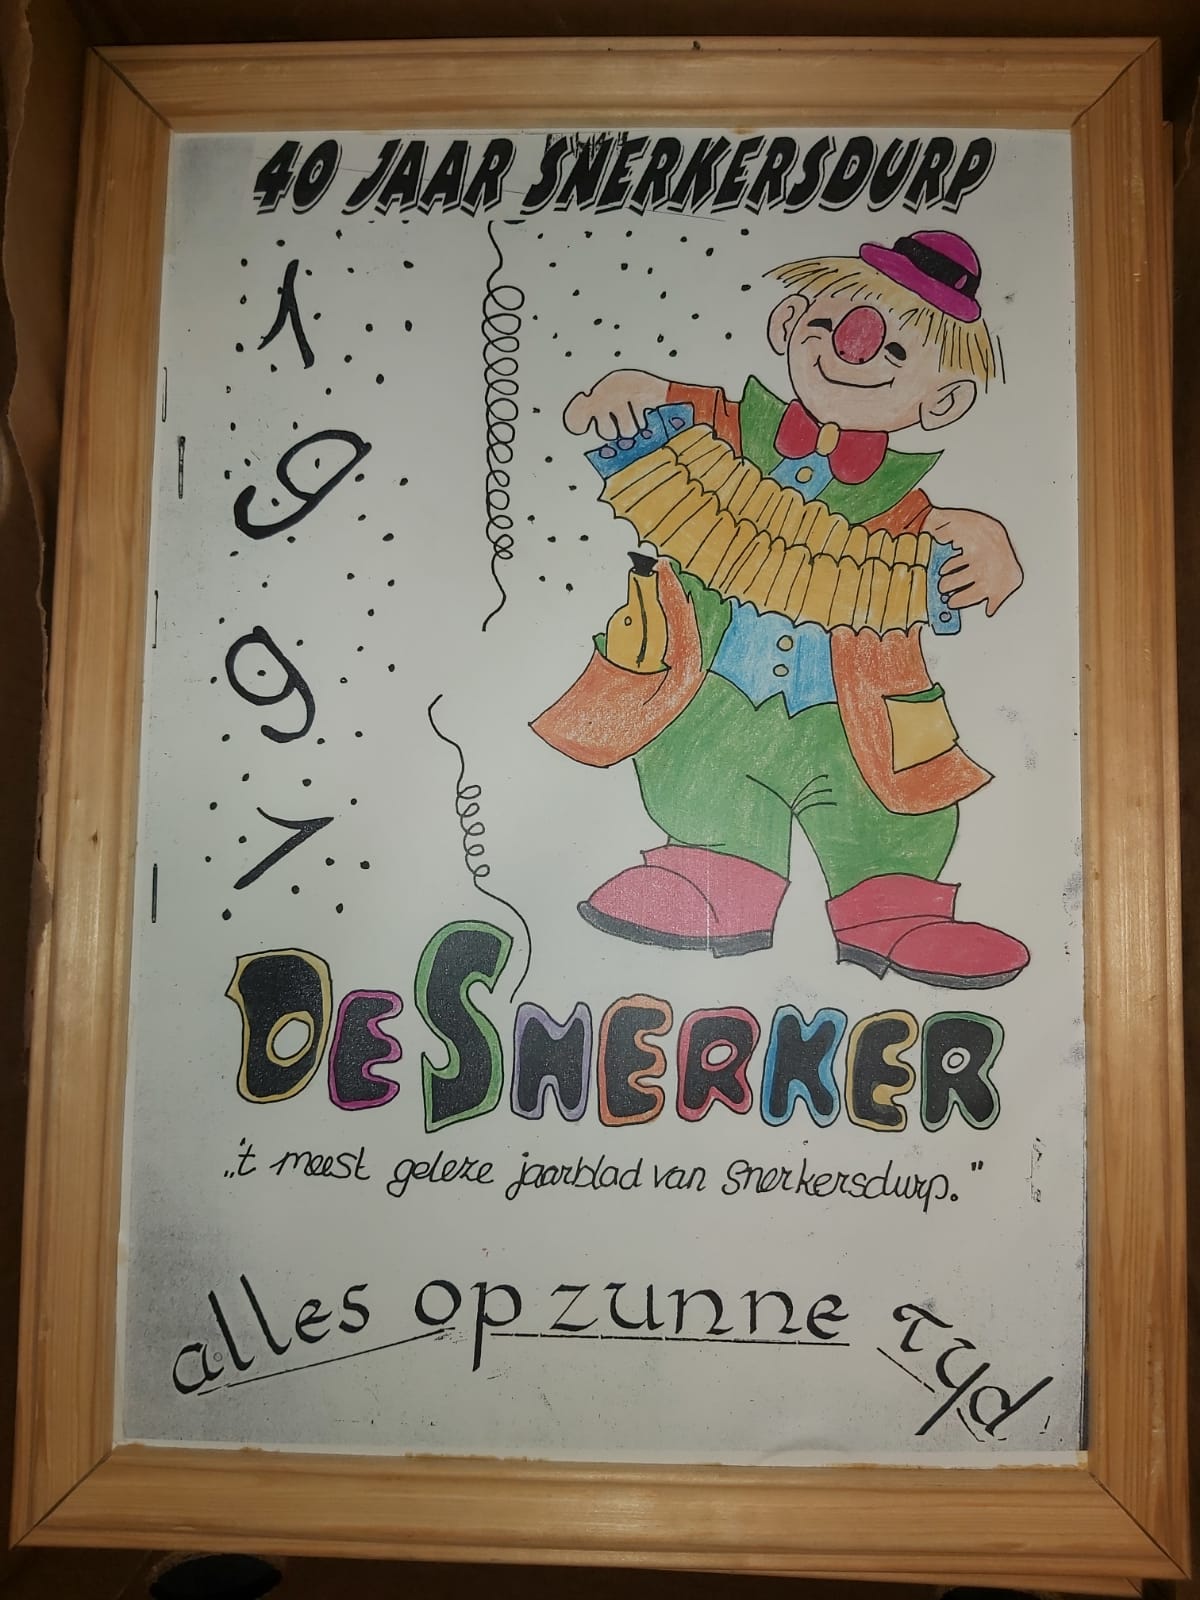 40 JAAR SNERKERSDURP
1991
DE SNERKER
„'t meest geleze jaarblad van Snerkersdurp."
alles op zunne Tyd!